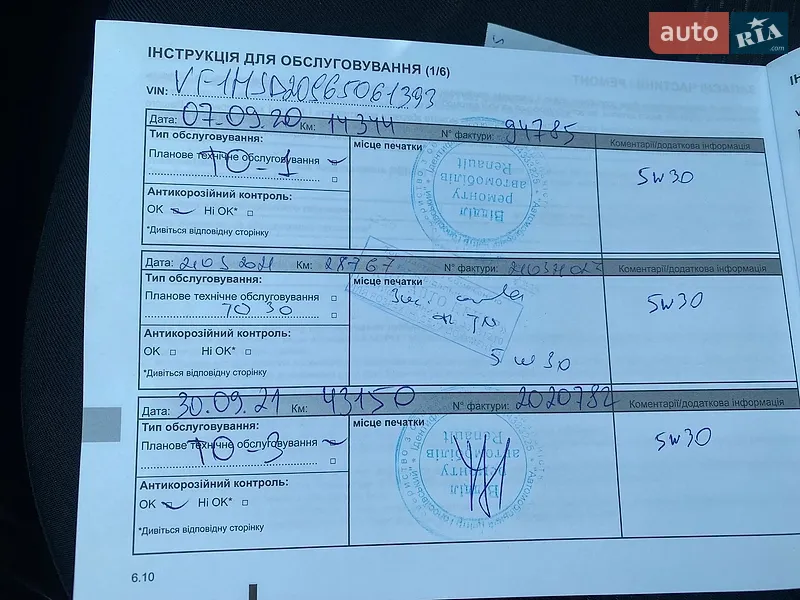 auto RIA .com
ІНСТРУКЦІЯ ДЛЯ ОБСЛУГОВУВАННЯ (1/6)
VIN: VF1HJD20965061393
Дата: 07.09.20 Км: 14344 № фактури: 94785
Тип обслуговування:
місце печатки
Коментарії/додаткова інформація
Планове технічне обслуговування
ТО-1
5w30
Антикорозійний контроль:
ОК Ні ОК*
*Дивіться відповідну сторінку
Відділ
ремонту
автомобілів
Renault
Дата: 21.03.2021 Км: 28767 № фактури:
Коментарії/додаткова інформація
Тип обслуговування:
місце печатки
Планове технічне обслуговування
ТО 30
5w30
5w30
Антикорозійний контроль:
ОК Ні ОК*
*Дивіться відповідну сторінку
Дата: 30.09.21 Км: 43150 № фактури: 2020782
Коментарії/додаткова інформація
Тип обслуговування:
місце печатки
Планове технічне обслуговування
ТО-3
5w30
Антикорозійний контроль:
ОК Ні ОК*
*Дивіться відповідну сторінку
Відділ
ремонту
автомобілів
Renault
6.10